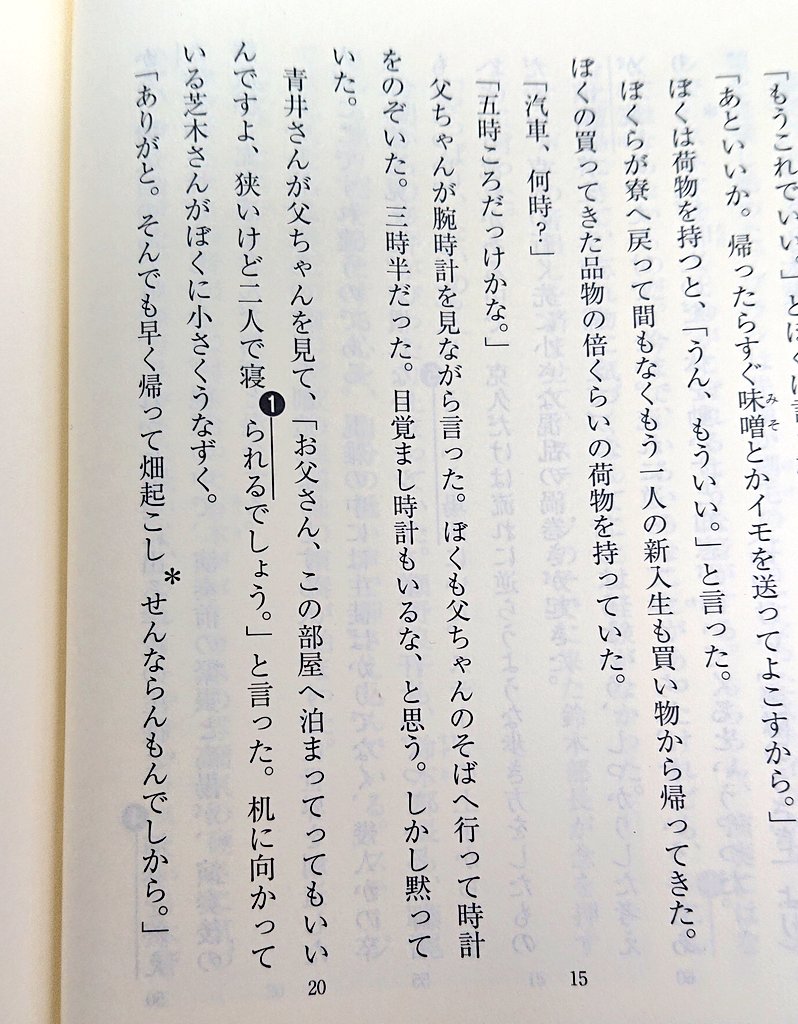 「もうこれでいい。」とぼくは言
「あといいか。帰ったらすぐ味噌とかイモを送ってよこすから。」
みそ
ぼくは荷物を持つと、「うん、もういい。」と言った。
ぼくらが寮へ戻って間もなくもう一人の新入生も買い物から帰ってきた。
ぼくの買ってきた品物の倍くらいの荷物を持っていた。
「汽車、何時？」
「五時ころだっけかな。」
15
父ちゃんが腕時計を見ながら言った。ぼくも父ちゃんのそばへ行って時計
をのぞいた。三時半だった。目覚まし時計もいるな、と思う。しかし黙って
いた。
青井さんが父ちゃんを見て、「お父さん、この部屋へ泊まってってもいい
20
んですよ、狭いけど二人で寝❶られるでしょう。」と言った。机に向かって
いる芝木さんがぼくに小さくうなずく。
「ありがと。そんでも早く帰って畑起こし＊せんならんもんでしから。」